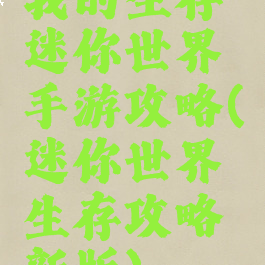 我的生存
迷你世界
手游攻略(
迷你世界
生存攻略
新版)